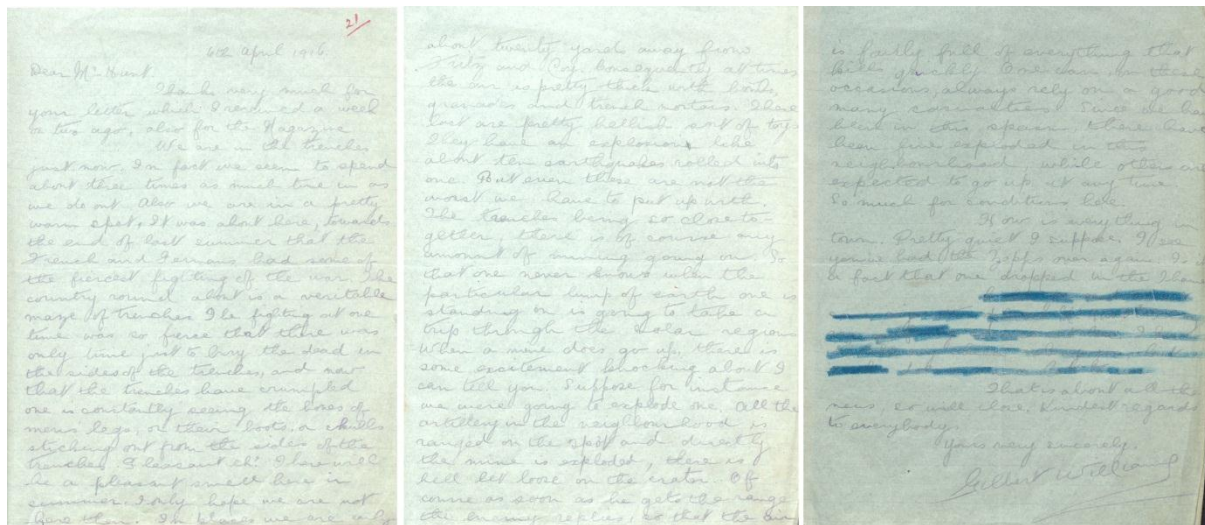 21
6th April 1916
Dear Mr Hunt.
Thanks very much for
your letter which I received a week
or two ago, also for the Magazine
We are in the trenches
just now. In fact we seem to spend
about three times as much time in as
we do out. Also we are in a pretty
warm spot. It was about here, towards
the end of last summer that the
French and Germans had some of
the fiercest fighting of the war. The
country round about is a veritable
maze of trenches The fighting at one
time was so fierce that there was
only time just to bury the dead in
the sides of the trenches, and now
that the trenches have crumpled
one is constantly seeing the bones of
mens legs, or their boots, or skulls
sticking out from the sides of the
trenches. Pleasant eh! There will
be a pleasant smell here in
summer. I only hope we are not
here then. In places we are only
about twenty yards away from
Fritz and Coy. Consequently at times
the air is pretty thick with bombs,
grenades and trench mortars. These
last are pretty hellish sort of toys
They have an explosion like
about ten earthquakes rolled into
one. But even these are not the
worst we have to put up with.
The trenches being so close to-
gether, there is of course any
amount of mining going on. So
that one never knows when the
particular lump of earth one is
standing on is going to take a
trip through the solar regions
When a mine does go up, there is
some excitement knocking about I
can tell you. Suppose for instance
we were going to explode one. All the
artillery in the neighbourhood is
ranged on the spot and directly
the mine is exploded, there is
hell let loose on the crater. Of
course as soon as he gets the range
the enemy replies, so that the air
is fairly full of everything that
kills quickly One can, on these
occasions, always rely on a good
many casualties. Since we have
been in this, there have
been five exploded in this
neighbourhood while others are
expected to go up at any time
So much for conditions here.
How is everything in
town. Pretty quiet I suppose. I see
you've had the Zepps over again. Is it
a fact that one dropped in the Thames
That is about all the
news, so will close. Kindest regards
to everybody.
Yours very sincerely.
Gilbert Williams